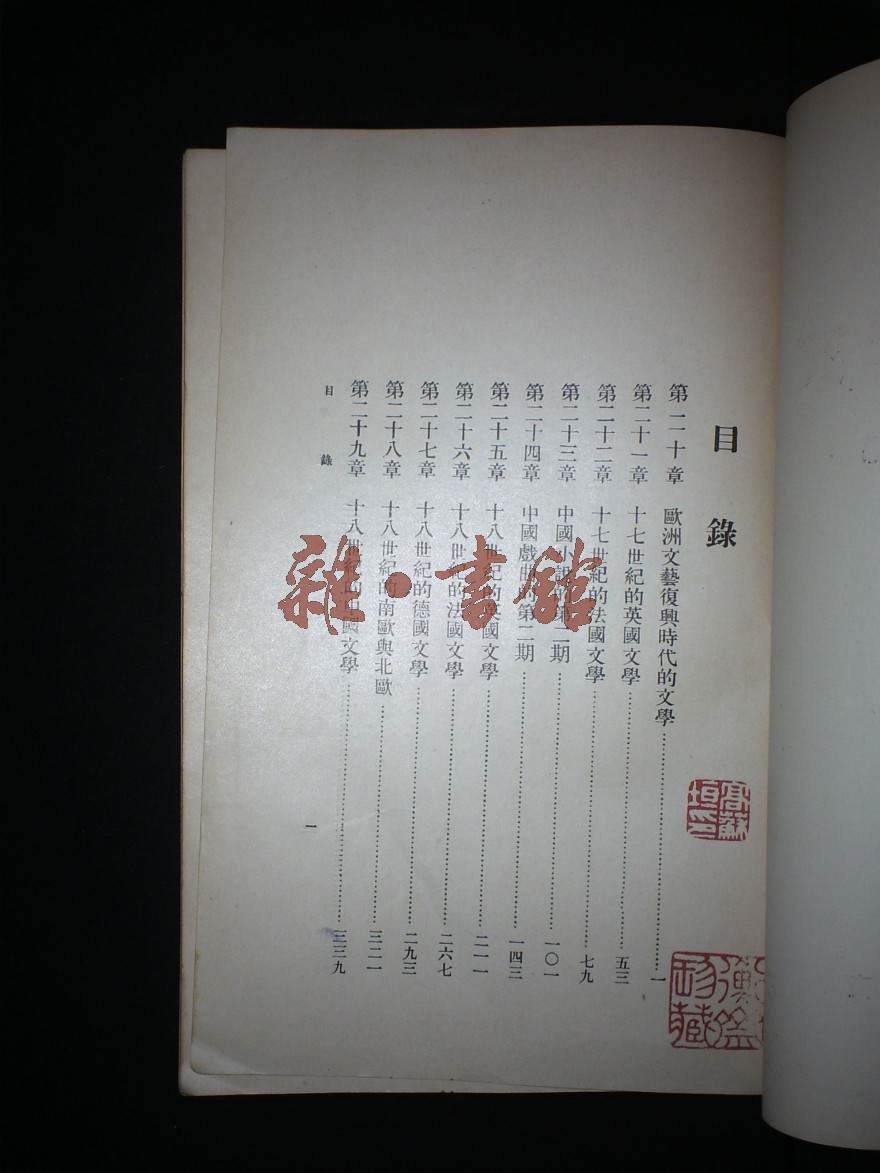 目錄
第二十章 歐洲文藝復興時代的文學……一
第二十一章 十七世紀的英國文學……五三
第二十二章 十七世紀的法國文學……七九
第二十三章 中國小說的第二期……一〇一
第二十四章 中國戲曲的第二期……一四三
第二十五章 十八世紀的英國文學……二一一
第二十六章 十八世紀的法國文學……二六七
第二十七章 十八世紀的德國文學……二九三
第二十八章 十八世紀的南歐與北歐……三二一
第二十九章 十八世紀的中國文學……三三九
目錄
一
雜·書館
高蘇垣印
珍藏